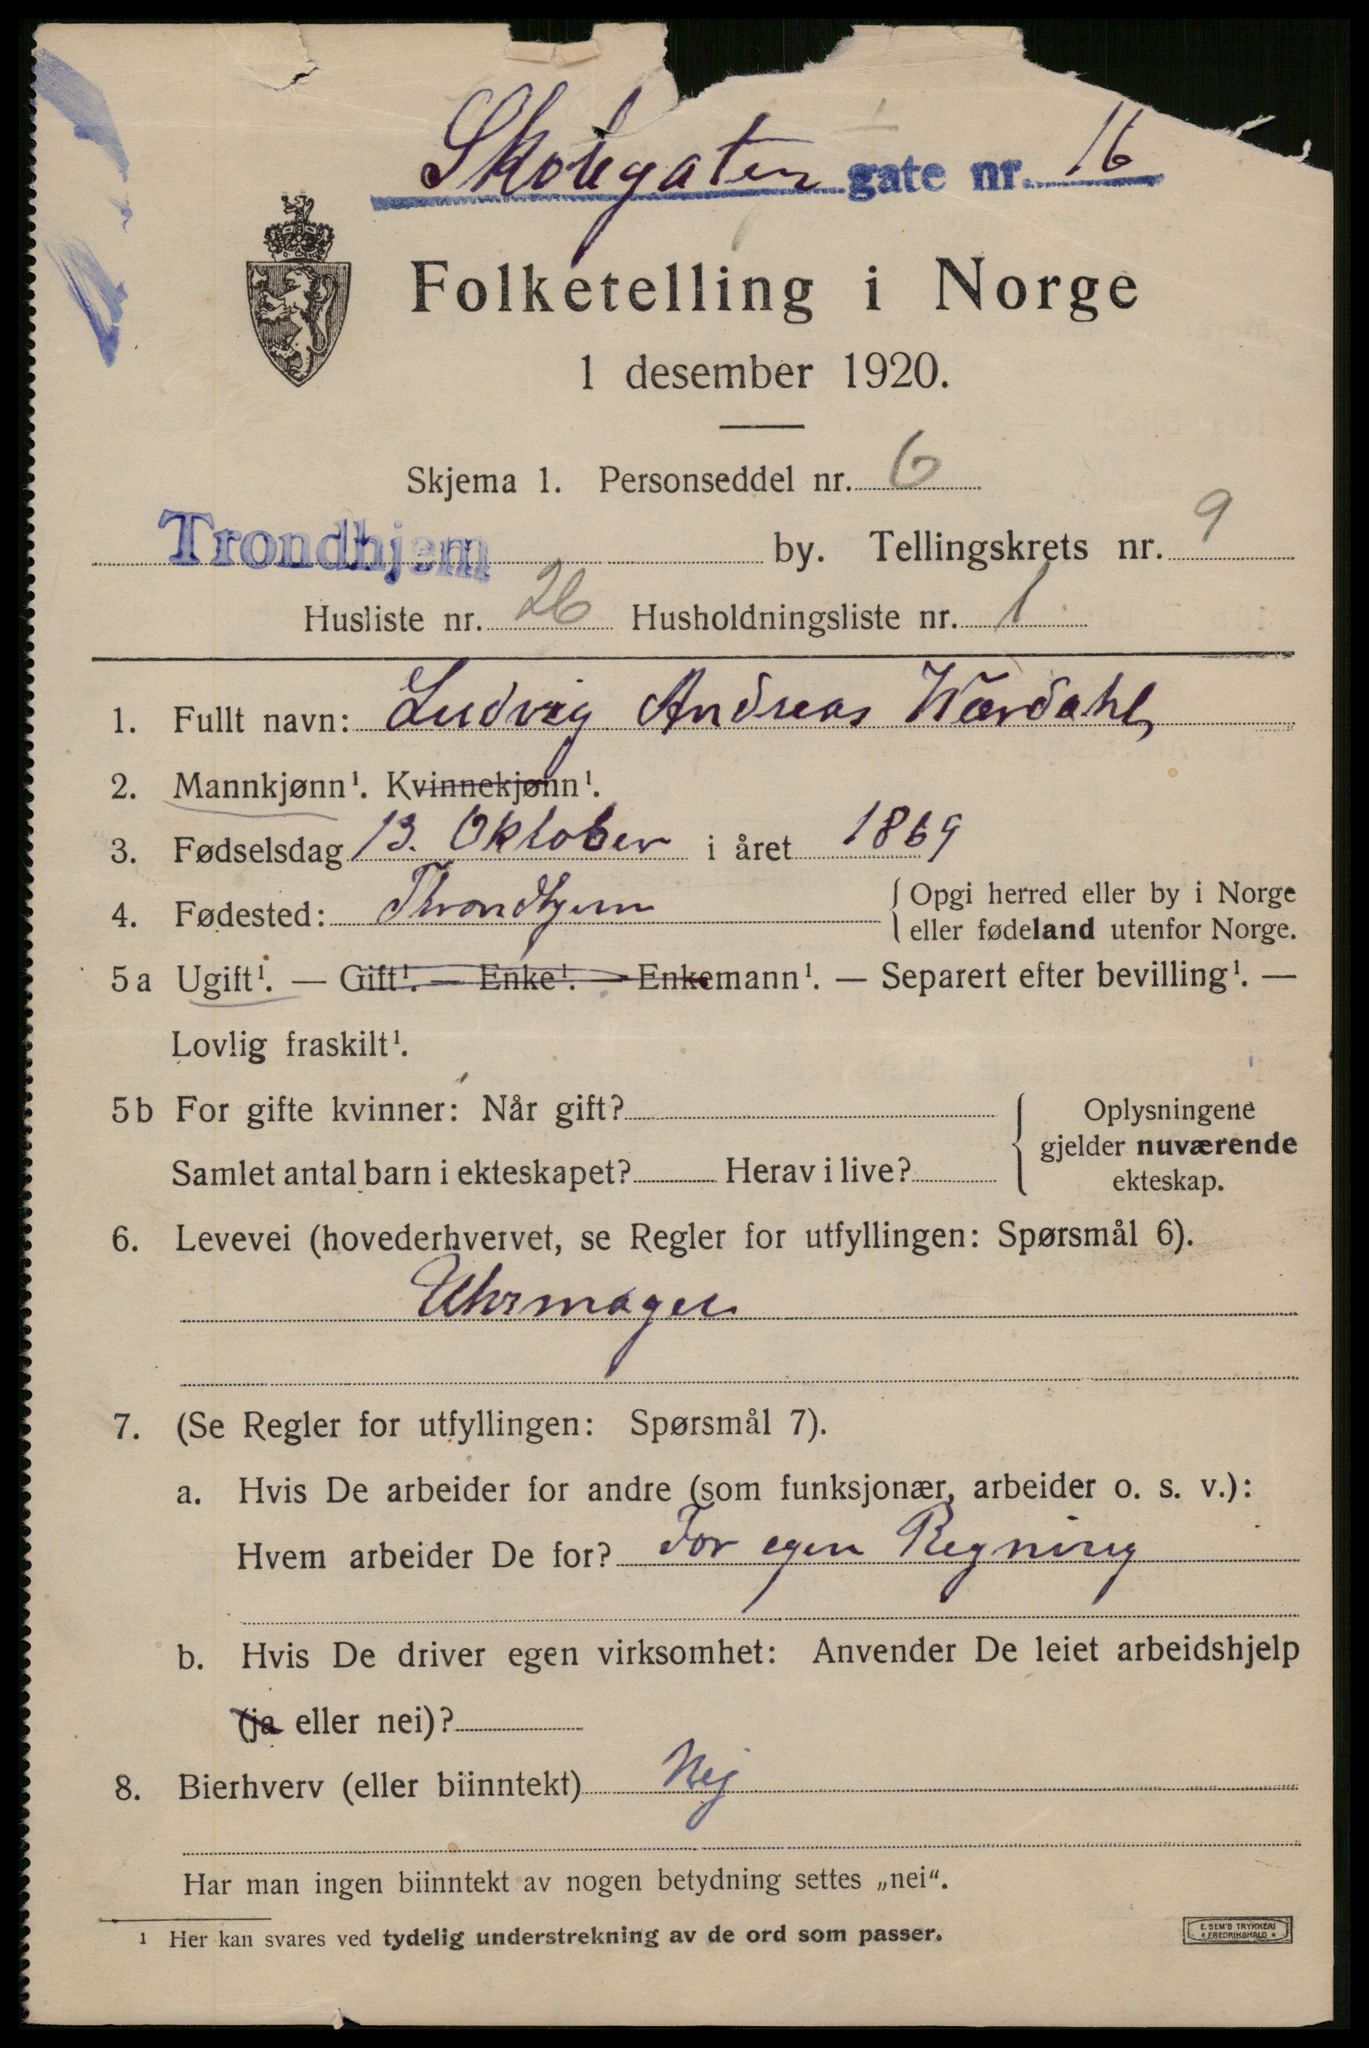 Skolegaten gate nr. 16
Folketelling i Norge
1 desember 1920.
Skjema 1. Personseddel nr. 6
Trondhjem by. Tellingskrets nr. 9
Husliste nr. 26 Husholdningsliste nr. 1
1. Fullt navn: Ludvig Andreas Værdahl,
2. Mannkjønn¹. Kvinnekjønn¹.
3. Fødselsdag 13. Oktober i året 1869
4. Fødested: Throndhjem { Opgi herred eller by i Norge
eller fødeland utenfor Norge.
5a Ugift¹. — Gift¹. — Enke¹. — Enkemann¹. — Separert efter bevilling¹. —
Lovlig fraskilt¹.
5b For gifte kvinner: Når gift? { Oplysningene
gjelder nuværende
Samlet antal barn i ekteskapet? Herav i live? ekteskap.
6. Levevei (hovederhvervet, se Regler for utfyllingen: Spørsmål 6).
Uhrmager
7. (Se Regler for utfyllingen: Spørsmål 7).
a. Hvis De arbeider for andre (som funksjonær, arbeider o. s. v.):
Hvem arbeider De for? For egen Regning
b. Hvis De driver egen virksomhet: Anvender De leiet arbeidshjelp
(ja eller nei)?
8. Bierhverv (eller biinntekt) Nej
Har man ingen biinntekt av nogen betydning settes „nei“.
¹ Her kan svares ved tydelig understrekning av de ord som passer.
E. SEM'S TRYKKERI
* FREDRIKSHALD *